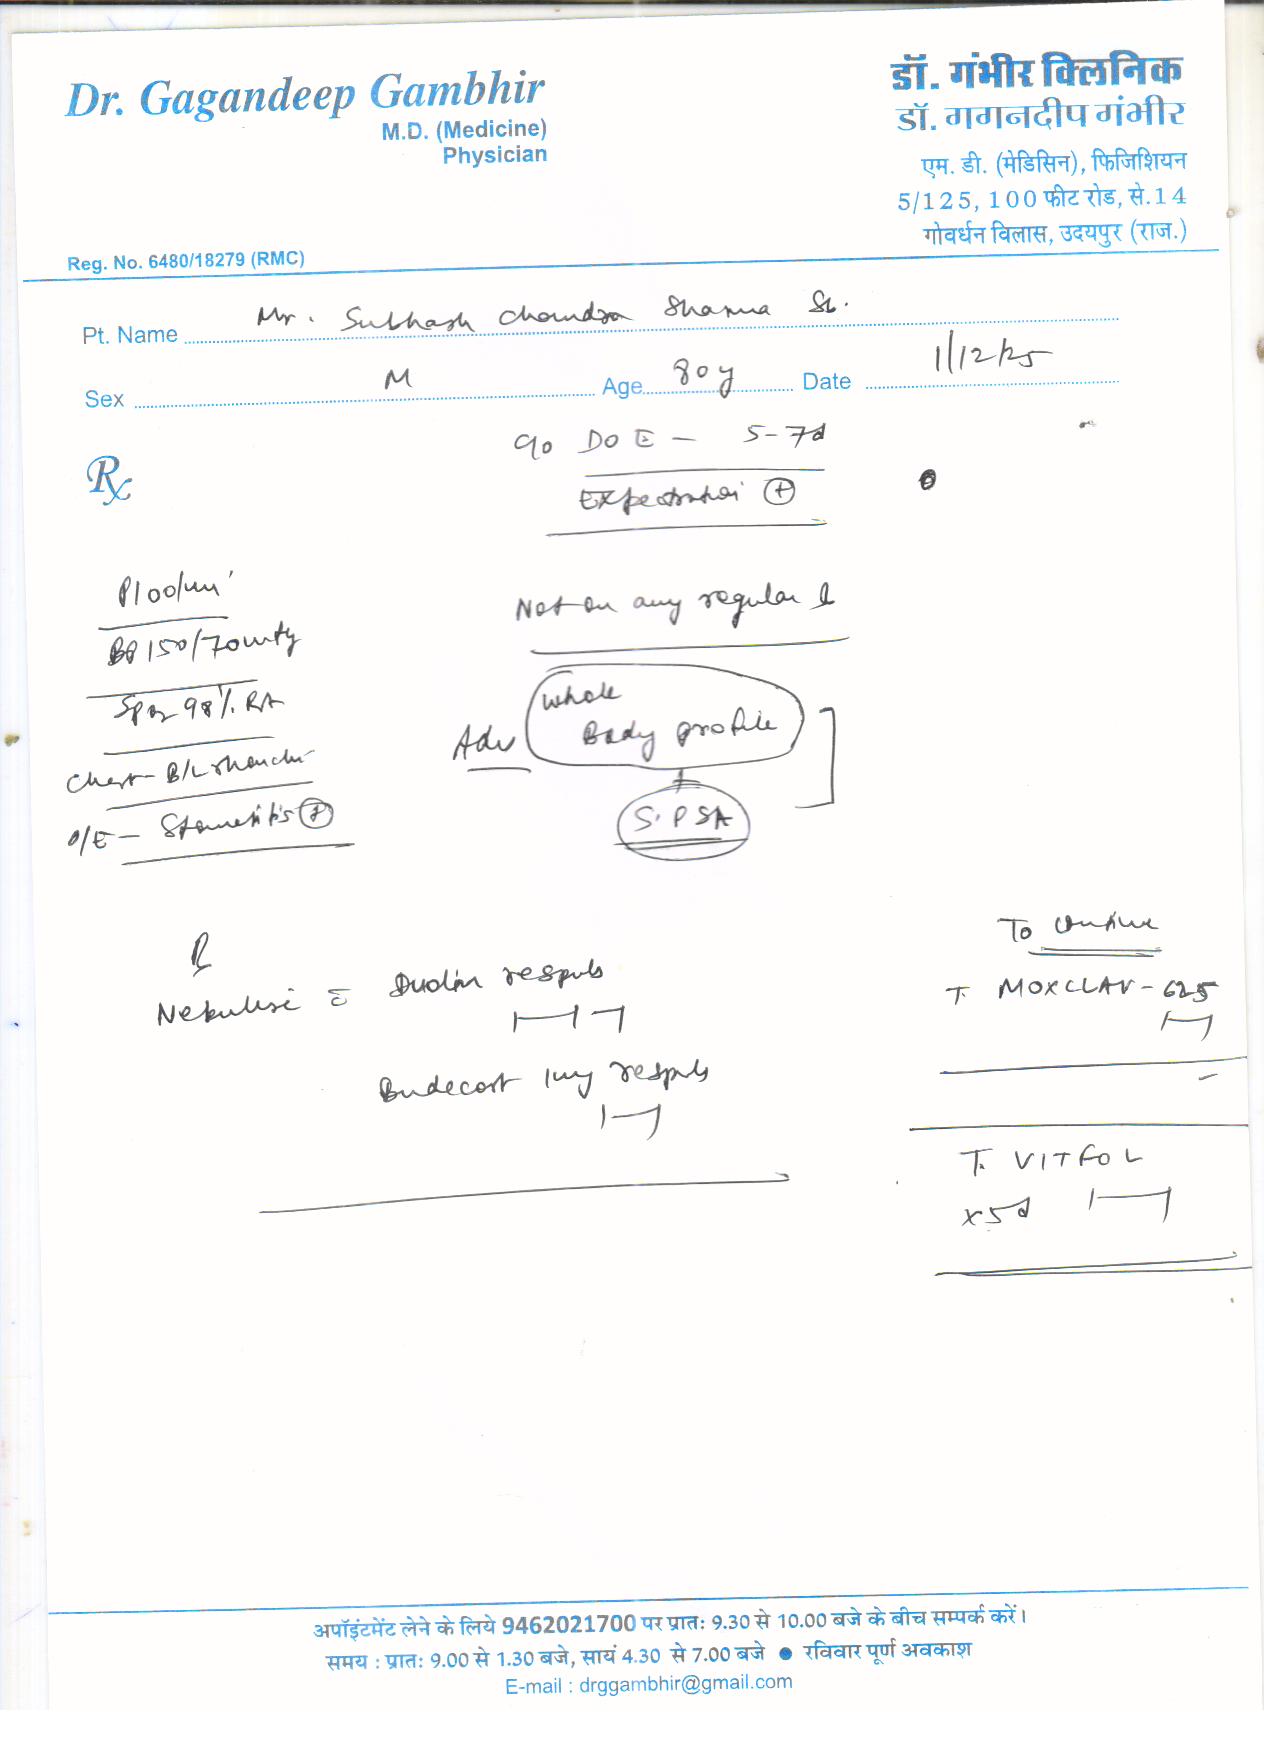 Dr. Gagandeep Gambhir
M.D. (Medicine)
Physician
Reg. No. 6480/18279 (RMC)
डॉ. गंभीर क्लिनिक
डॉ. गगनदीप गंभीर
एम. डी. (मेडिसिन), फिजिशियन
5/125, 100 फीट रोड, से.14
गोवर्धन विलास, उदयपुर (राज.)
Pt. Name Mr. Subhash Chandra Sharma Sr.
Sex M Age 80y Date 1/12/25
Rx
c/o DOE - 5-7d
Expectoration +
Not on any regular
P100/min
BP 150/70mmHg
SpO2 98% RA
Chest- B/L rhonchi
O/E - Stomatitis +
Adv Whole
Body profile
+
S. PSA
R
Nebulise c̄ Duolin respuls
Budecort 1mg respuls
To continue
T. MOXCLAV - 625
T. VITFOL
x5d
अपॉइंटमेंट लेने के लिये 9462021700 पर प्रातः 9.30 से 10.00 बजे के बीच सम्पर्क करें।
समय : प्रातः 9.00 से 1.30 बजे, सायं 4.30 से 7.00 बजे ● रविवार पूर्ण अवकाश
E-mail : drggambhir@gmail.com